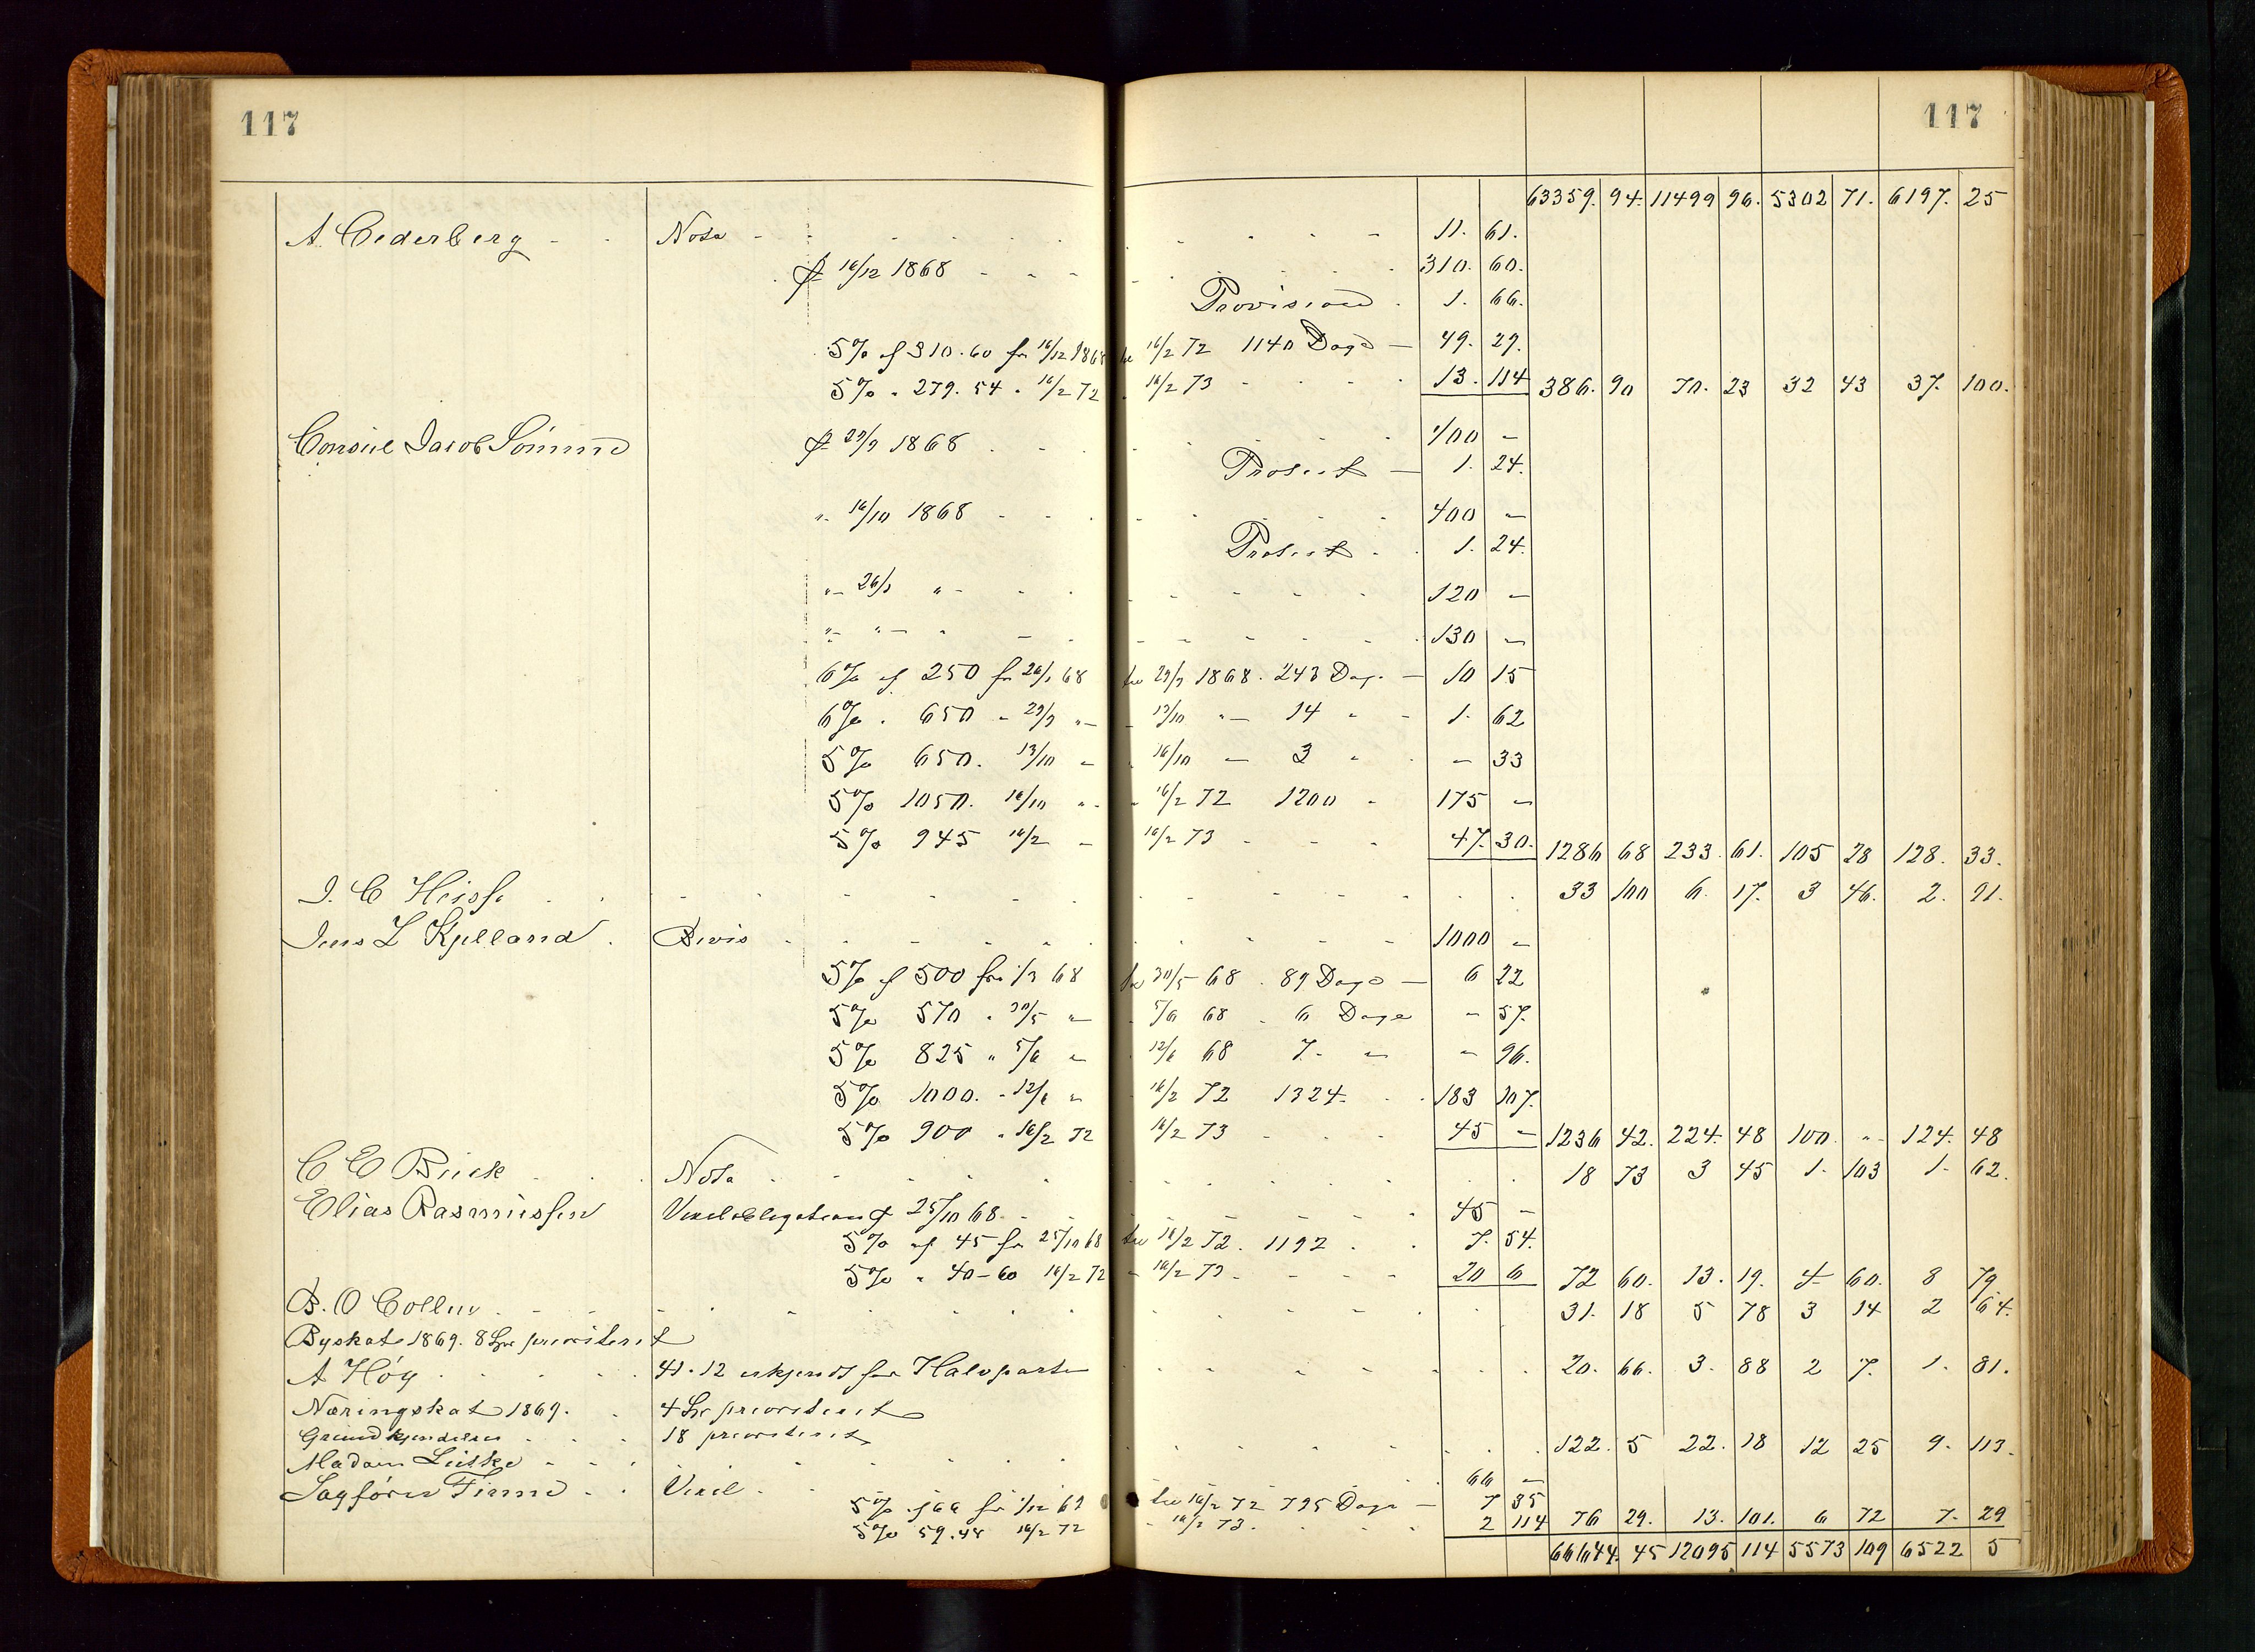 117 117
63359. 94. 11499 96. 5302 71. 6197. 25
A. Cederberg - - Nota - - 11. 61.
pr 16/12 1868 - - - 310. 60.
Provision . 1. 66.
5% af 310.60 fra 16/12 1868 til 16/2 72 1140 Dage - 49. 29.
5% " 279.54 " 16/2 72 " 16/2 73 - - 13. 114 386. 90 70. 23 32 43 37. 100.
Consul Jacob Sömme pr 29/9 1868 . . - 400 -
Protest - 1. 24.
" 16/10 1868 - - 400 -
Protest . 1. 24.
" - 26/1 " - - 120 -
" - " - " - 130 -
6% af 250 fra 26/1 68 til 29/9 1868. 243 Dage - 10 15
6% " 650 " 29/9 " - - 13/10 " - 14 " - 1. 62
5% 650. 13/10 - . 16/10 - 3 " - 33
5% 1050. 16/10 " - " 16/2 72 1200 " 175 -
5% 945 16/2 - 16/2 73 - - - 47. 30. 1286 68 233. 61. 105 28 128. 33.
J. C. Heiss . . 33 100 6. 17. 3 46. 2. 91.
Jens Z Kjelland . Bevis - - 1000 -
5% af 500 fra 1/3 68 til 30/5 68 . 89 Dage - 6 22
5% 570 " 30/5 " - 5/6 68 . 6 Dage - 57.
5% 825 " 5/6 " 12/6 68 7. " - 96.
5% 1000. " 12/6 " 16/2 72 1324. . . 183 107.
5% 900 " 16/2 72 16/2 73 - - - 45 - 1236 42. 224. 48 100. " - 124. 48
C E Buck . . Nota . . 18 73 3 45 1. 103 1. 62.
Elias Rasmussen Vexelobligation pr 25/10 68 - - 45 -
5% af 45 fra 25/10 68 til 16/2 72. 1192 . . 7. 54.
5% " 40-60 16/2 72 - 16/2 73 - - 20 6 72 60. 13. 19. 4 60. 8 79
B. O Collin . - - 31. 18 5 78 3 14 2 64.
Byskat 1869. 8 prioriteret
A Høy . . 41.12 erkjendt for Halvparten . . 20. 66. 3. 88 2 7. 1. 81.
Næringskat 1869. . 4 prioriteret
Grundkjendelsen . . . 18 prioriteret
Madam - - . . 122. 5 22. 18 12 25 9. 113.
Sagfører - . Vexel . - 66 -
5% af 66 fra 1/12 69 til 16/2 72 795 Dage - 7 35
5% 59.48 16/2 72 - 16/2 73. . . 2 114 76 29. 13. 101. 6 72 7. 29
66644. 45 12095 114 5573 109 6522 5